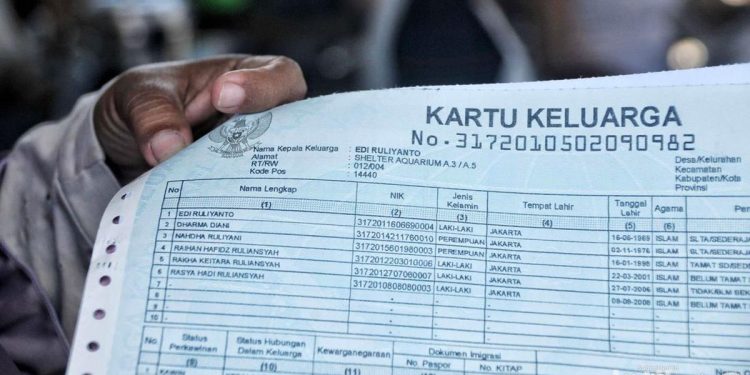 KARTU KELUARGA
No. 3172010502090982
Nama Kepala Keluarga : EDI RULIYANTO
Alamat : SHELTER AQUARIUM A.3 / A.5
RT/RW : 012/004
Kode Pos : 14440
Desa/Kelurahan
Kecamatan
Kabupaten/Kota
Provinsi
No Nama Lengkap NIK Jenis Kelamin Tempat Lahir Tanggal Lahir Agama
(1) (2) (3) (4) (5) (6)
1 EDI RULIYANTO 3172011606690004 LAKI-LAKI JAKARTA 16-06-1969 ISLAM SLTA/SEDERAJA
2 DHARMA DIANI 3172014211760010 PEREMPUAN JAKARTA 02-11-1976 ISLAM SLTA/SEDERAJ
3 NAHDHA RULIYANI 3172015601980003 PEREMPUAN JAKARTA 16-01-1998 ISLAM TAMAT SD/SEDE
4 RAIHAN HAFIDZ RULIANSYAH 3172012203010006 LAKI-LAKI JAKARTA 22-03-2001 ISLAM BELUM TAMAT
5 RAKHA KEITARA RULIANSYAH 3172012707060007 LAKI-LAKI JAKARTA 27-07-2006 ISLAM TIDAK/BLM SEK
6 RASYA HADI RULIANSYAH 3172010808080003 LAKI-LAKI JAKARTA 08-08-2008 ISLAM BELUM TAMAT
7 -
8 -
9 -
10 -
No Status Perkawinan Status Hubungan Dalam Keluarga Kewarganegaraan Dokumen Imigrasi
No. Paspor No. KITAP
(9) (10) (11)